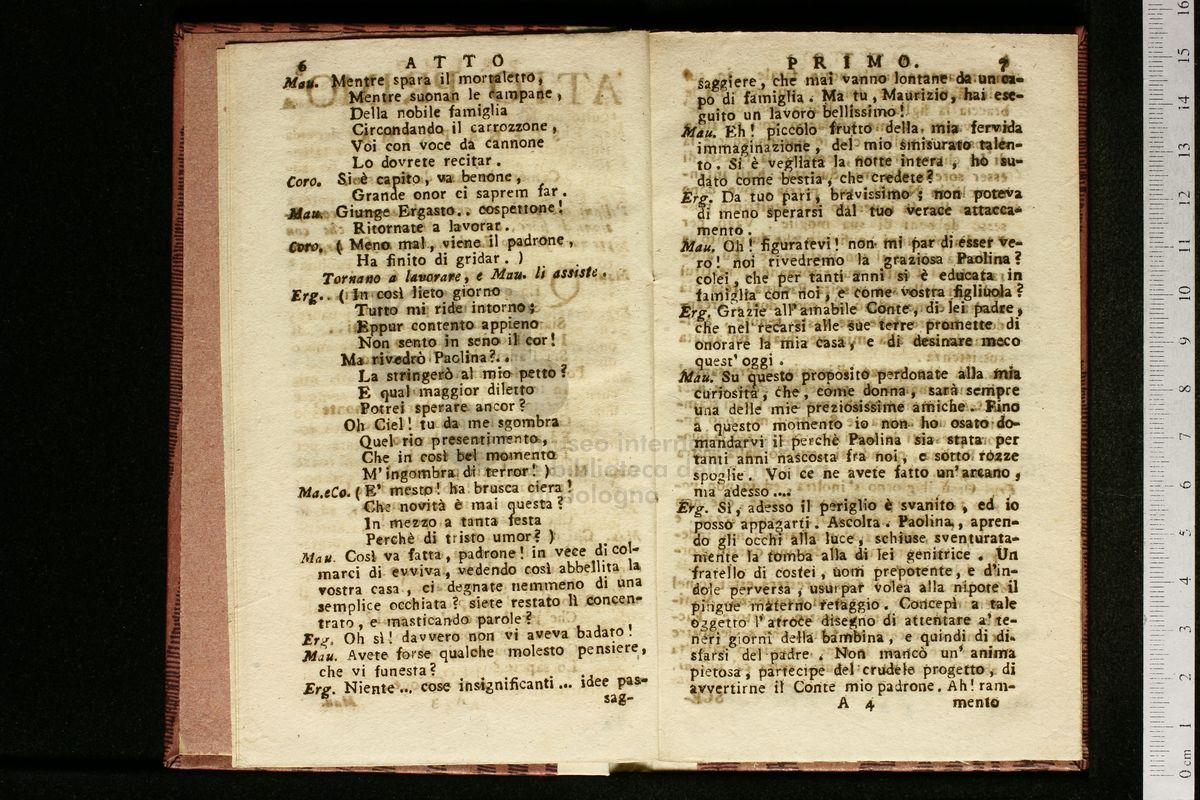 6
A T T O
Mau. Mentre spara il mortaletto,
Mentre suonan le campane,
Della nobile famiglia
Circondando il carrozzone,
Voi con voce da cannone
Lo dovrete recitar.
Coro. Si è capito, va benone,
Grande onor ci saprem far.
Mau. Giunge Ergasto.. cospettone!
Ritornate a lavorar.
Coro. ( Meno mal, viene il padrone,
Ha finito di gridar. )
Tornano a lavorare, e Mau. li assiste.
Erg.. ( In così lieto giorno
Tutto mi ride intorno;
Eppur contento appieno
Non sento in seno il cor!
Ma rivedrò Paolina?..
La stringerò al mio petto?
E qual maggior diletto
Potrei sperare ancor?
Oh Ciel! tu da me sgombra
Quel rio presentimento,
Che in così bel momento
M'ingombra di terror! )
Ma.eCo. ( E' mesto! ha brusca ciera!
Che novità è mai questa?
In mezzo a tanta festa
Perchè di tristo umor? )
Mau. Così va fatta, padrone! in vece di col-
marci di evviva, vedendo così abbellita la
vostra casa, ci degnate nemmeno di una
semplice occhiata? siete restato lì concen-
trato, e masticando parole?
Erg. Oh sì! davvero non vi aveva badato!
Mau. Avete forse qualche molesto pensiere,
che vi funesta?
Erg. Niente... cose insignificanti... idee pas-
sag-
P R I M O.
7
saggiere, che mai vanno lontane da un ca-
po di famiglia. Ma tu, Maurizio, hai ese-
guito un lavoro bellissimo!
Mau. Eh! piccolo frutto della mia fervida
immaginazione, del mio smisurato talen-
to. Si è vegliata la notte intera, ho su-
dato come bestia, che credete?
Erg. Da tuo pari, bravissimo; non poteva
di meno sperarsi dal tuo verace attacca-
mento.
Mau. Oh! figuratevi! non mi par di esser ve-
ro! noi rivedremo la graziosa Paolina?
colei, che per tanti anni si è educata in
famiglia con noi, e come vostra figliuola?
Erg. Grazie all'amabile Conte, di lei padre,
che nel recarsi alle sue terre promette di
onorare la mia casa, e di desinare meco
quest' oggi.
Mau. Su questo proposito perdonate alla mia
curiosità, che, come donna, sarà sempre
una delle mie preziosissime amiche. Fino
a questo momento io non ho osato do-
mandarvi il perchè Paolina sia stata per
tanti anni nascosta fra noi, e sotto rozze
spoglie. Voi ce ne avete fatto un'arcano,
ma adesso....
Erg. Sì, adesso il periglio è svanito, ed io
posso appagarti. Ascolta. Paolina, apren-
do gli occhi alla luce, schiuse sventurata-
mente la tomba alla di lei genitrice. Un
fratello di costei, uom prepotente, e d'in-
dole perversa, usurpar volea alla nipote il
pingue materno retaggio. Concepì a tale
oggetto l'atroce disegno di attentare a' te-
neri giorni della bambina, e quindi di di-
sfarsi del padre. Non mancò un' anima
pietosa, partecipe del crudele progetto, di
avvertirne il Conte mio padrone. Ah! ram-
A 4
mento